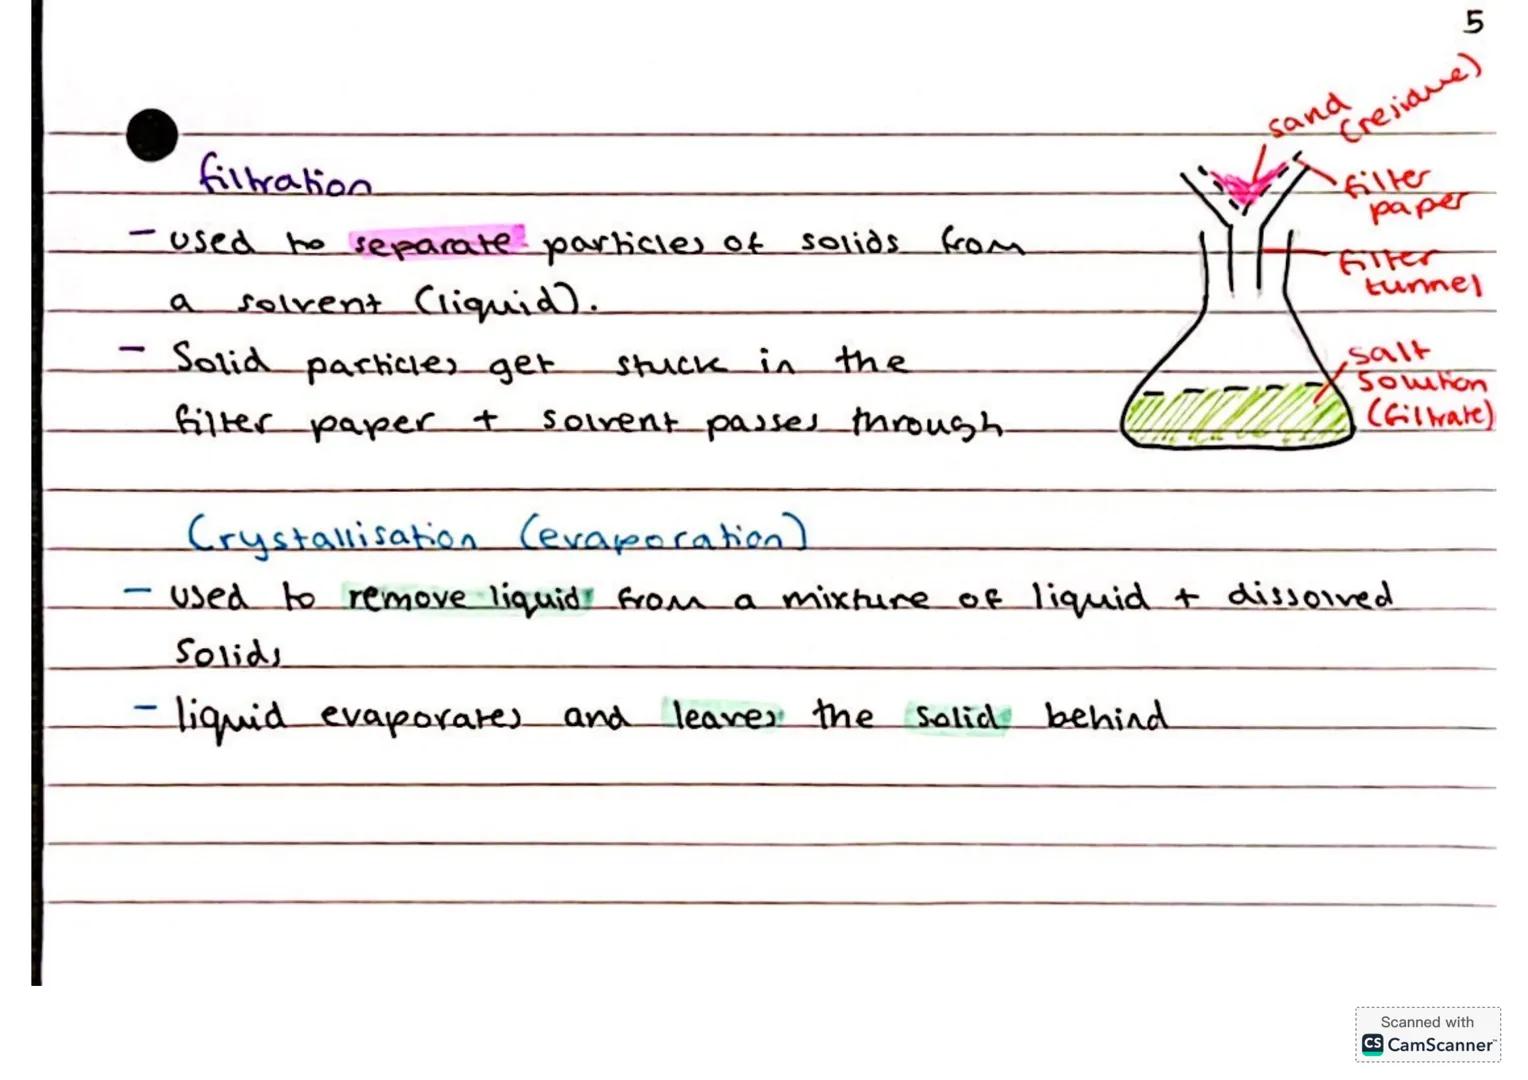 5
filtration
- used to separate particles of solids from
a solvent (liquid).
- Solid particles get stuck in the
filter paper + solvent passes through
sand
(residue)
filter
paper
filter
tunnel
salt
solution
(filtrate)
Crystallisation (evaporation)
- used to remove liquids from a mixture of liquid + dissolved
Solids
- liquid evaporates and leaves the solid behind
Scanned with
CS CamScanner